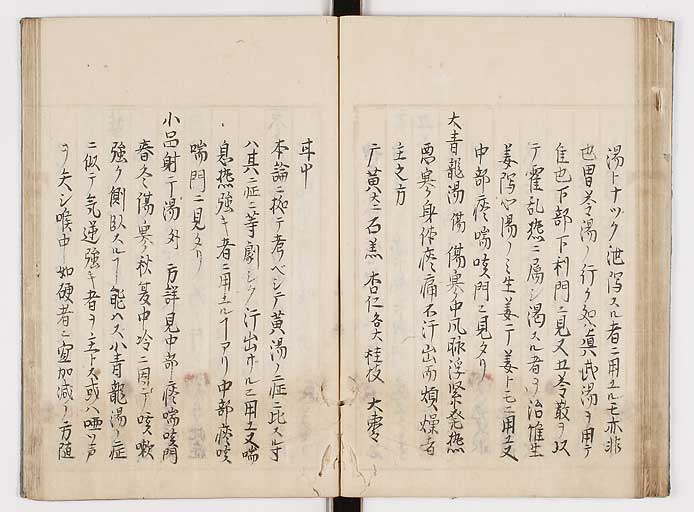 湯トナツク泄瀉スル者ニ用エルモ亦非
也胃苓湯ノ行ク処眞武湯ヲ用テ
佳也下部下利門ニ見又五苓散ヲ以
テ霍乱熱ニ属シ渇スル者ヲ治惟生
姜瀉心湯ノミ生姜干姜トモニ用エ又
中部痰喘咳門ニ見タリ
大青龍湯傷 傷寒中風脉浮緊発熱
悪寒身体疼痛不汗出而煩燥者
主之方
麻黄 石羔 杏仁各大桂枝 大棗
耳中
本論ニ拠テ考ベシ麻黄湯ノ症ニ比スルニ寸
ハ其症ニ等劇シク汗出ホルニ用エ又喘
息熱強キ者ニ用エルヿアリ中部痰咳
喘門ニ見タリ
小品射干湯外 方詳見中部痰喘咳門
春冬傷寒秋夏中冷ニ因テ咳嗽
強ク側臥スルヿ能ハズ小青龍湯ノ症
ニ似テ気逆強キ者ヲ主トス或ハ唖シ声
ヲ失シ喉中如硬者ニ宜加減ノ方随